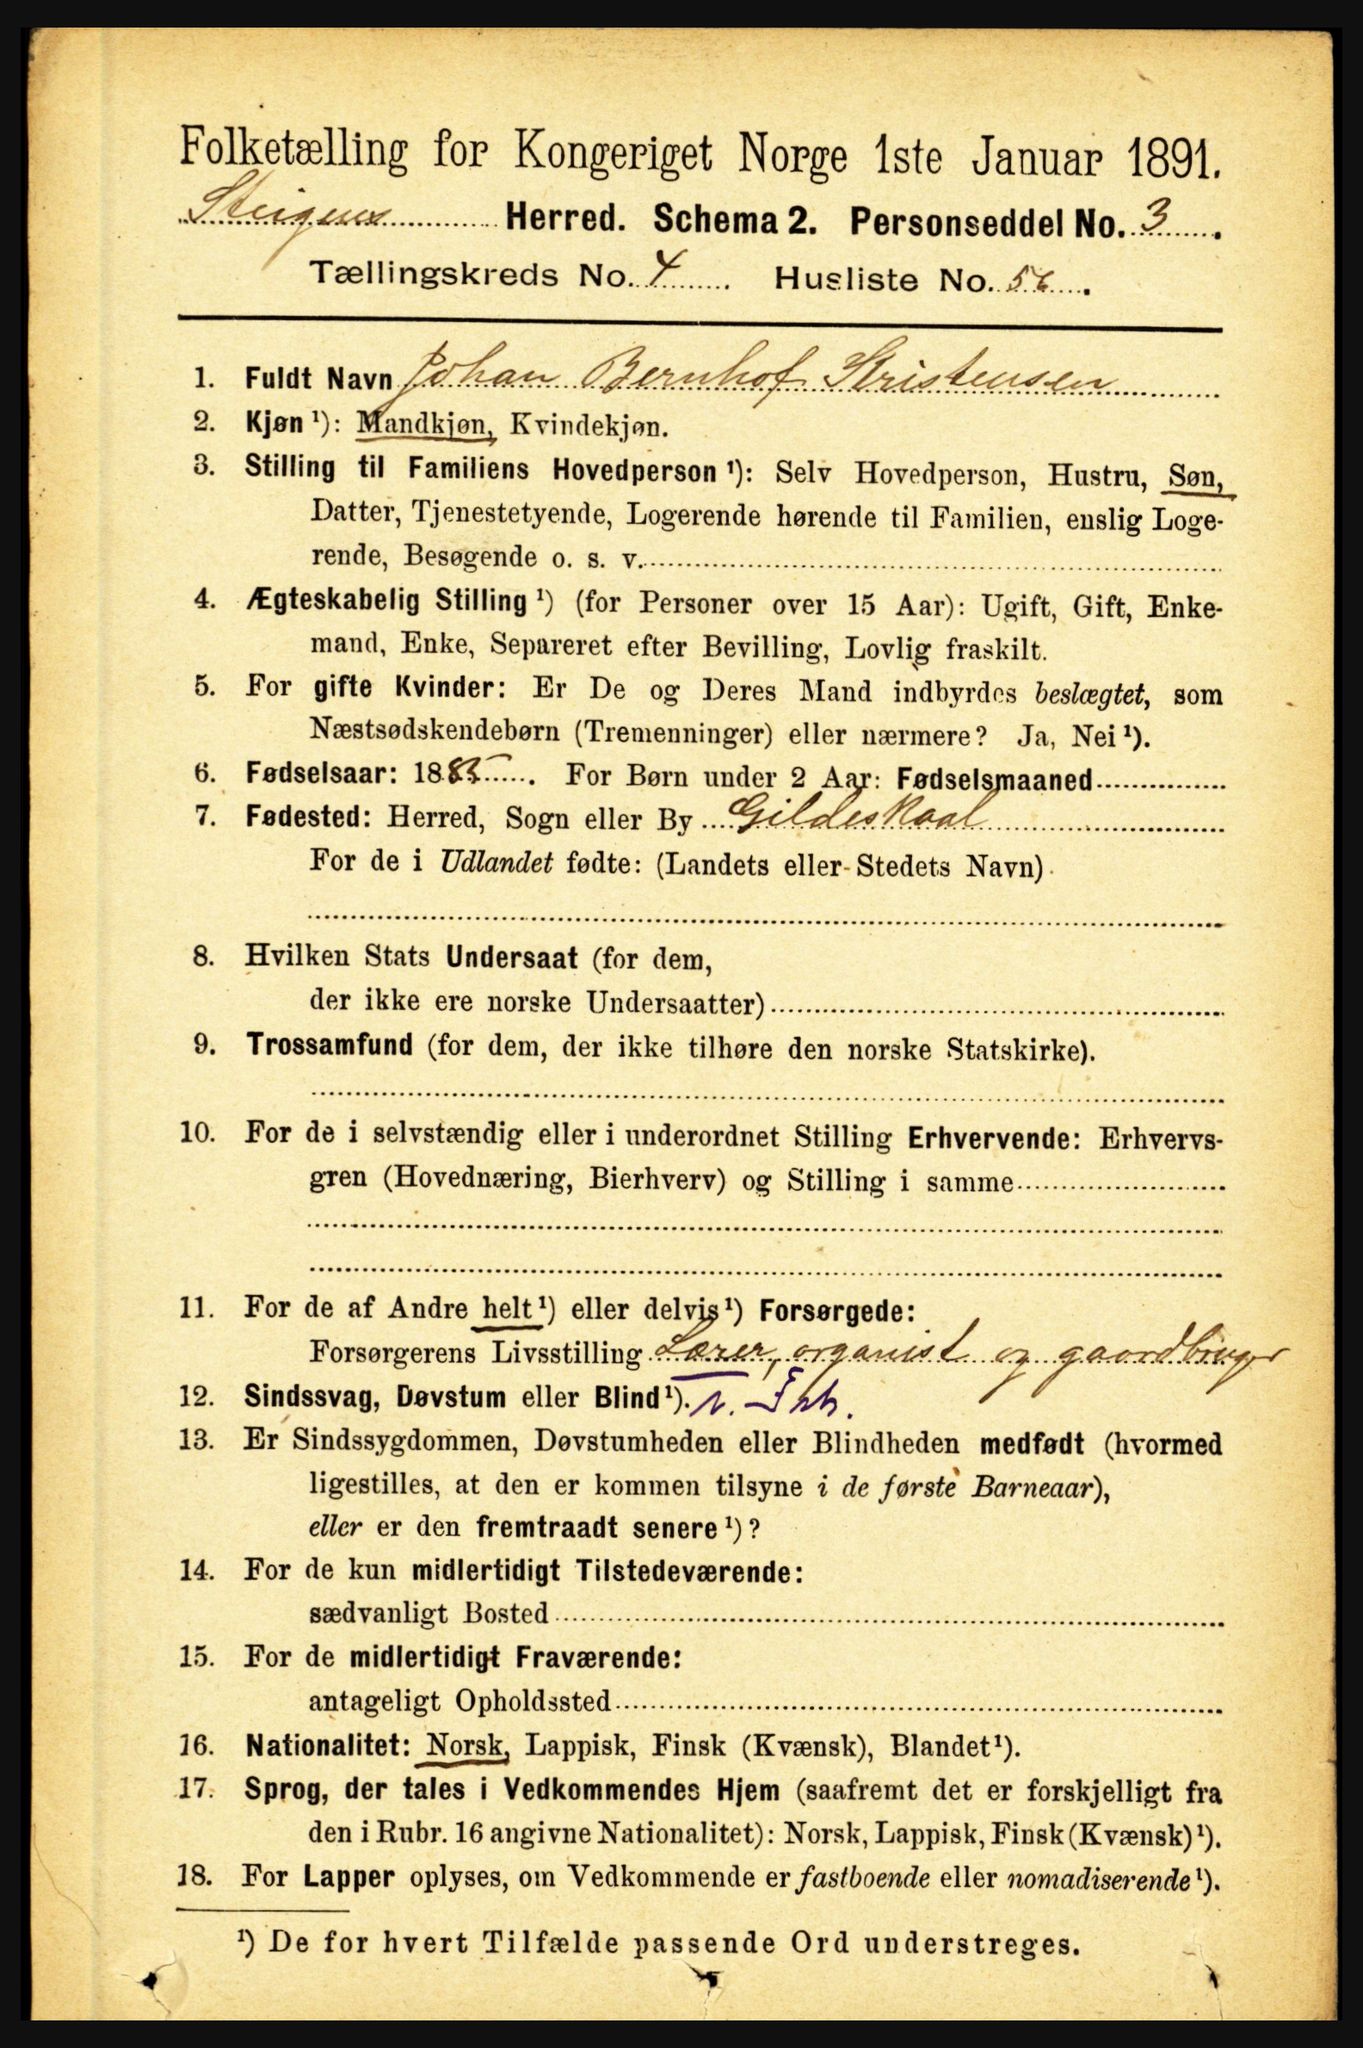 Folketælling for Kongeriget Norge 1ste Januar 1891.
Steigens Herred. Schema 2. Personseddel No. 3.
Tællingskreds No. 4. Husliste No. 56.
1. Fuldt Navn Johan Bernhof Kristensen
2. Kjøn ¹): Mandkjøn, Kvindekjøn.
3. Stilling til Familiens Hovedperson ¹): Selv Hovedperson, Hustru, Søn,
Datter, Tjenestetyende, Logerende hørende til Familien, enslig Loge-
rende, Besøgende o. s. v.
4. Ægteskabelig Stilling ¹) (for Personer over 15 Aar): Ugift, Gift, Enke-
mand, Enke, Separeret efter Bevilling, Lovlig fraskilt.
5. For gifte Kvinder: Er De og Deres Mand indbyrdes beslægtet, som
Næstsødskendebørn (Tremenninger) eller nærmere? Ja, Nei ¹).
6. Fødselsaar: 1885. For Børn under 2 Aar: Fødselsmaaned
7. Fødested: Herred, Sogn eller By Gildeskaal
For de i Udlandet fødte: (Landets eller Stedets Navn)
8. Hvilken Stats Undersaat (for dem,
der ikke ere norske Undersaatter)
9. Trossamfund (for dem, der ikke tilhøre den norske Statskirke).
10. For de i selvstændig eller i underordnet Stilling Erhvervende: Erhvervs-
gren (Hovednæring, Bierhverv) og Stilling i samme
11. For de af Andre helt ¹) eller delvis ¹) Forsørgede:
Forsørgerens Livsstilling Lærer, organist og gaardbruger
12. Sindssvag, Døvstum eller Blind ¹).
13. Er Sindssygdommen, Døvstumheden eller Blindheden medfødt (hvormed
ligestilles, at den er kommen tilsyne i de første Barneaar),
eller er den fremtraadt senere ¹)?
14. For de kun midlertidigt Tilstedeværende:
sædvanligt Bosted
15. For de midlertidigt Fraværende:
antageligt Opholdssted
16. Nationalitet: Norsk, Lappisk, Finsk (Kvænsk), Blandet ¹).
17. Sprog, der tales i Vedkommendes Hjem (saafremt det er forskjelligt fra
den i Rubr. 16 angivne Nationalitet): Norsk, Lappisk, Finsk (Kvænsk) ¹).
18. For Lapper oplyses, om Vedkommende er fastboende eller nomadiserende ¹).
¹) De for hvert Tilfælde passende Ord understreges.